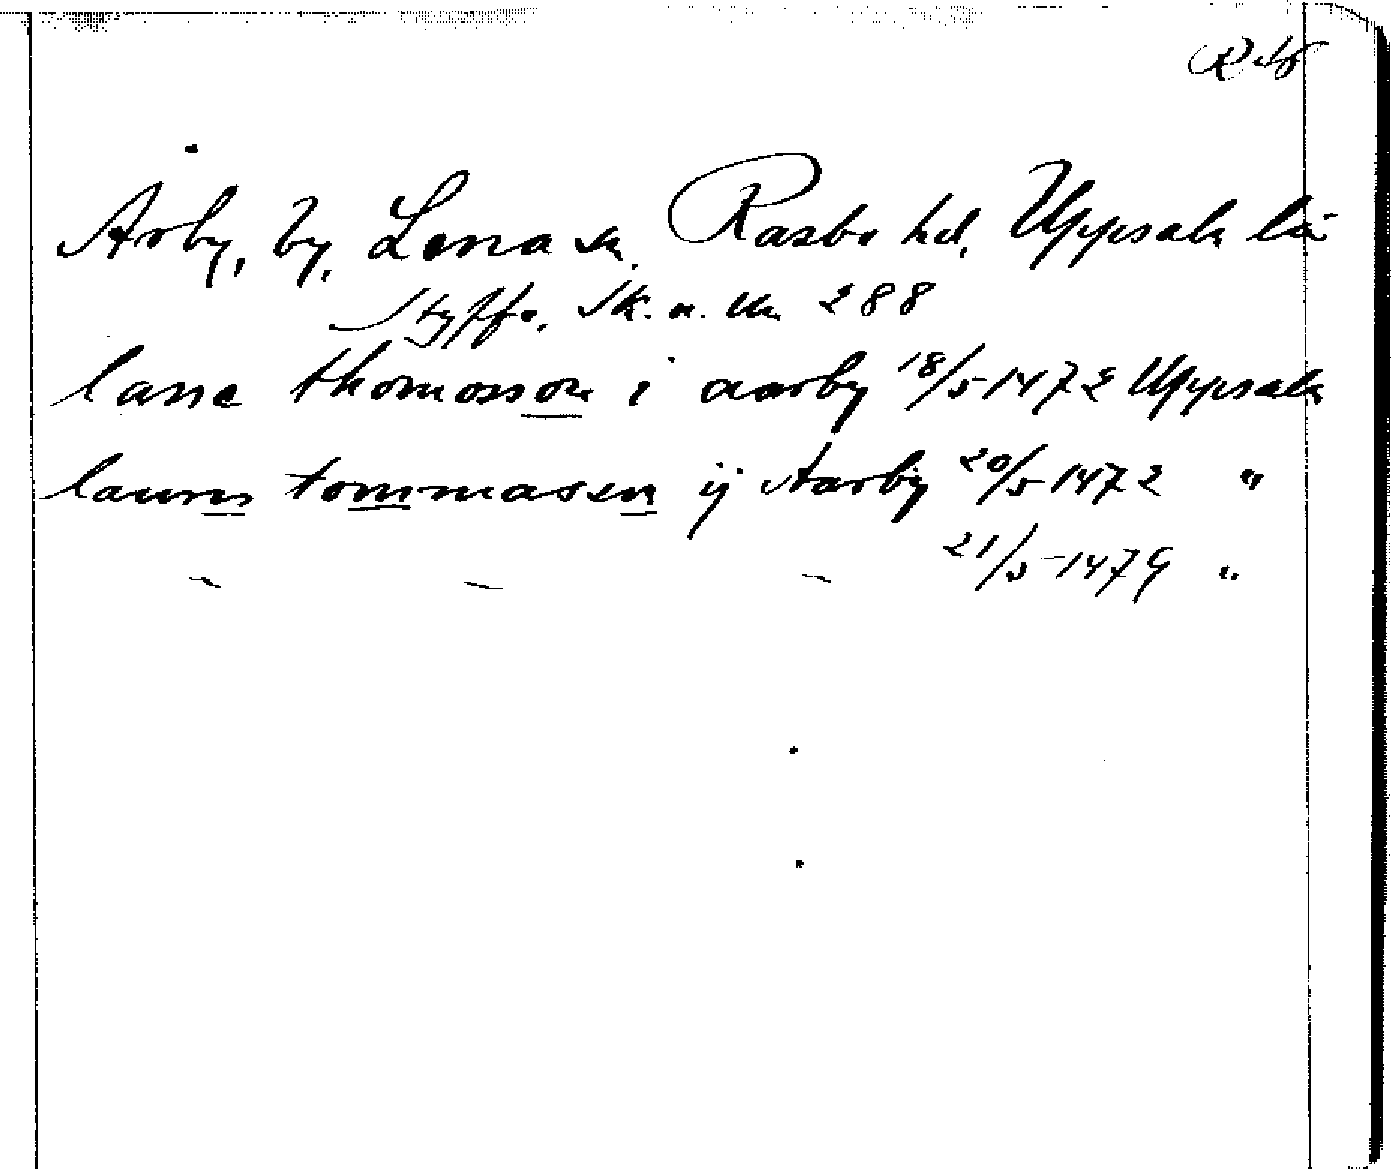 Årby, by, Lena sn. Rasbo hd. Uppsala län
Styffe, Sk. u. un. 288
lasse thomosson i aarby 18/5 1472 Uppsala
laurns tommasen ij Aarby 20/5 1472 "
– – – 21/5 1479 "